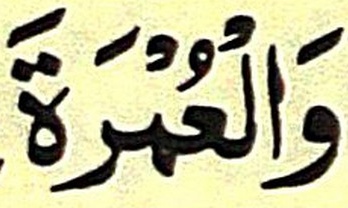 وَالْعُمْرَةَ